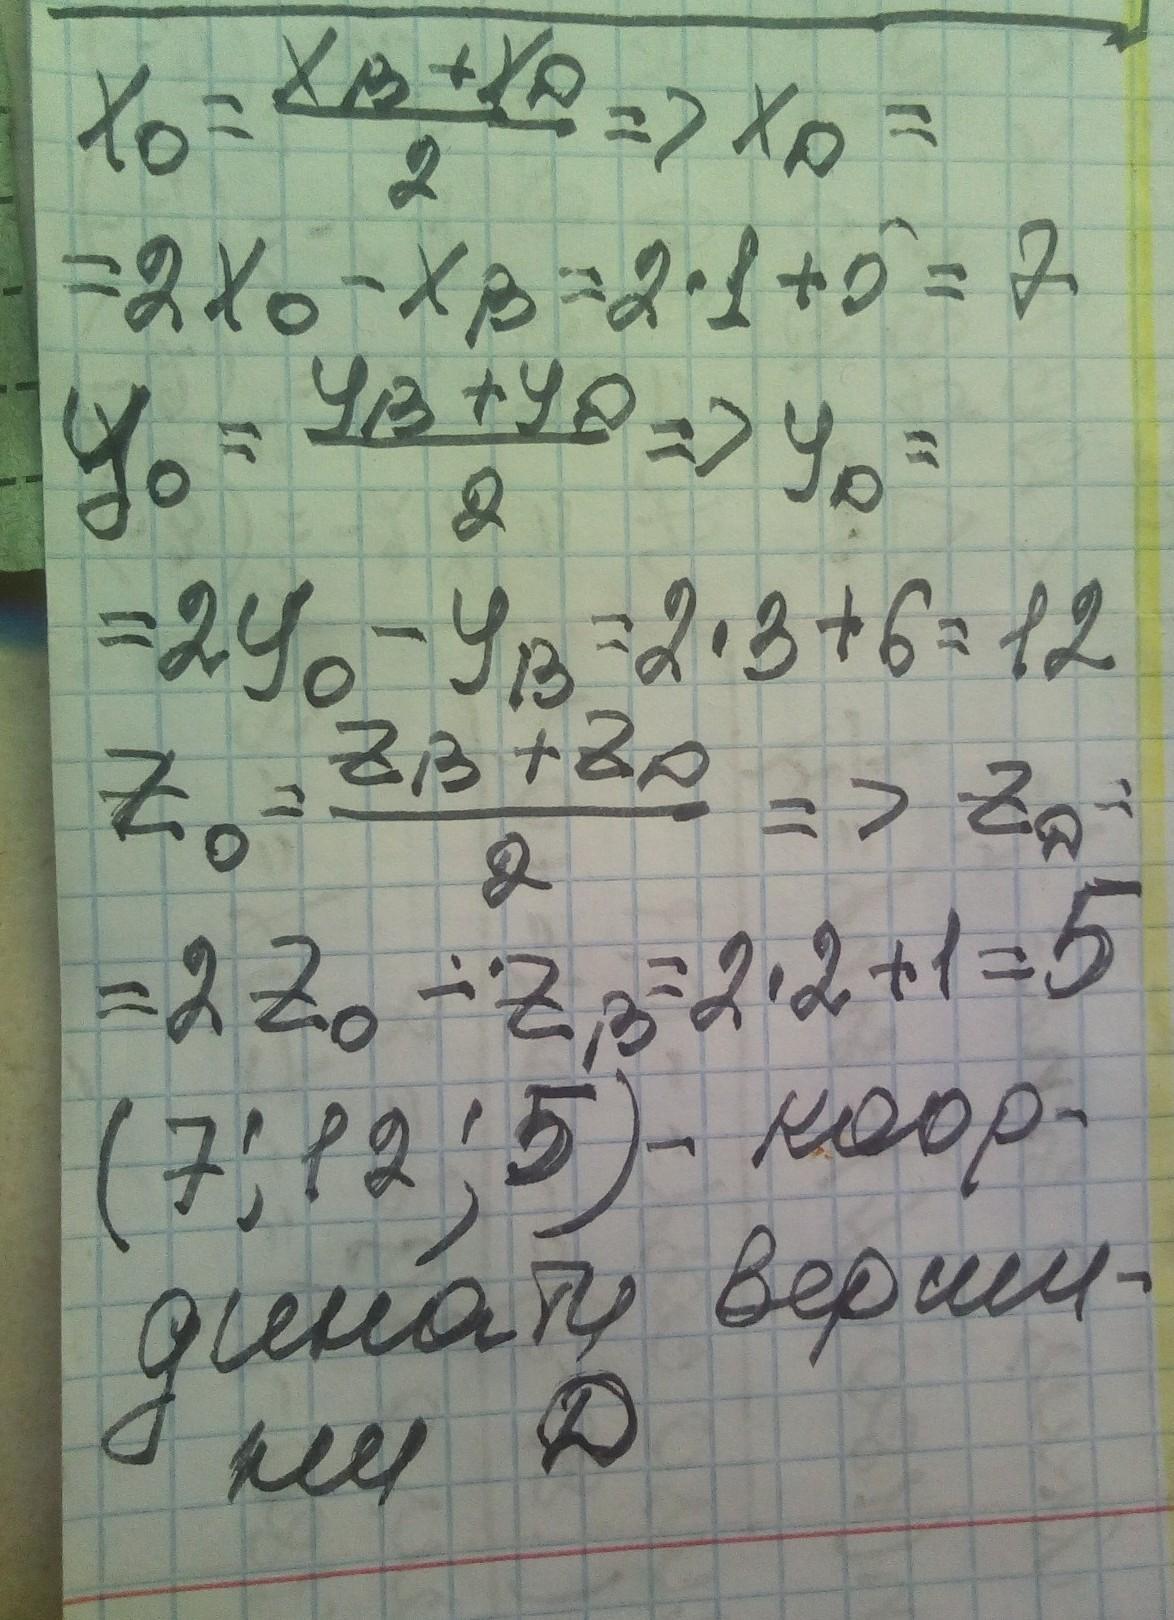 x₀ = (x_B + x_D)/2 => x_D =
= 2x₀ - x_B = 2·1 + 5 = 7
y₀ = (y_B + y_D)/2 => y_D =
= 2y₀ - y_B = 2·3 + 6 = 12
z₀ = (z_B + z_D)/2 => z_D =
= 2z₀ - z_B = 2·2 + 1 = 5
(7; 12; 5) - коор-
динати верши-
ни D